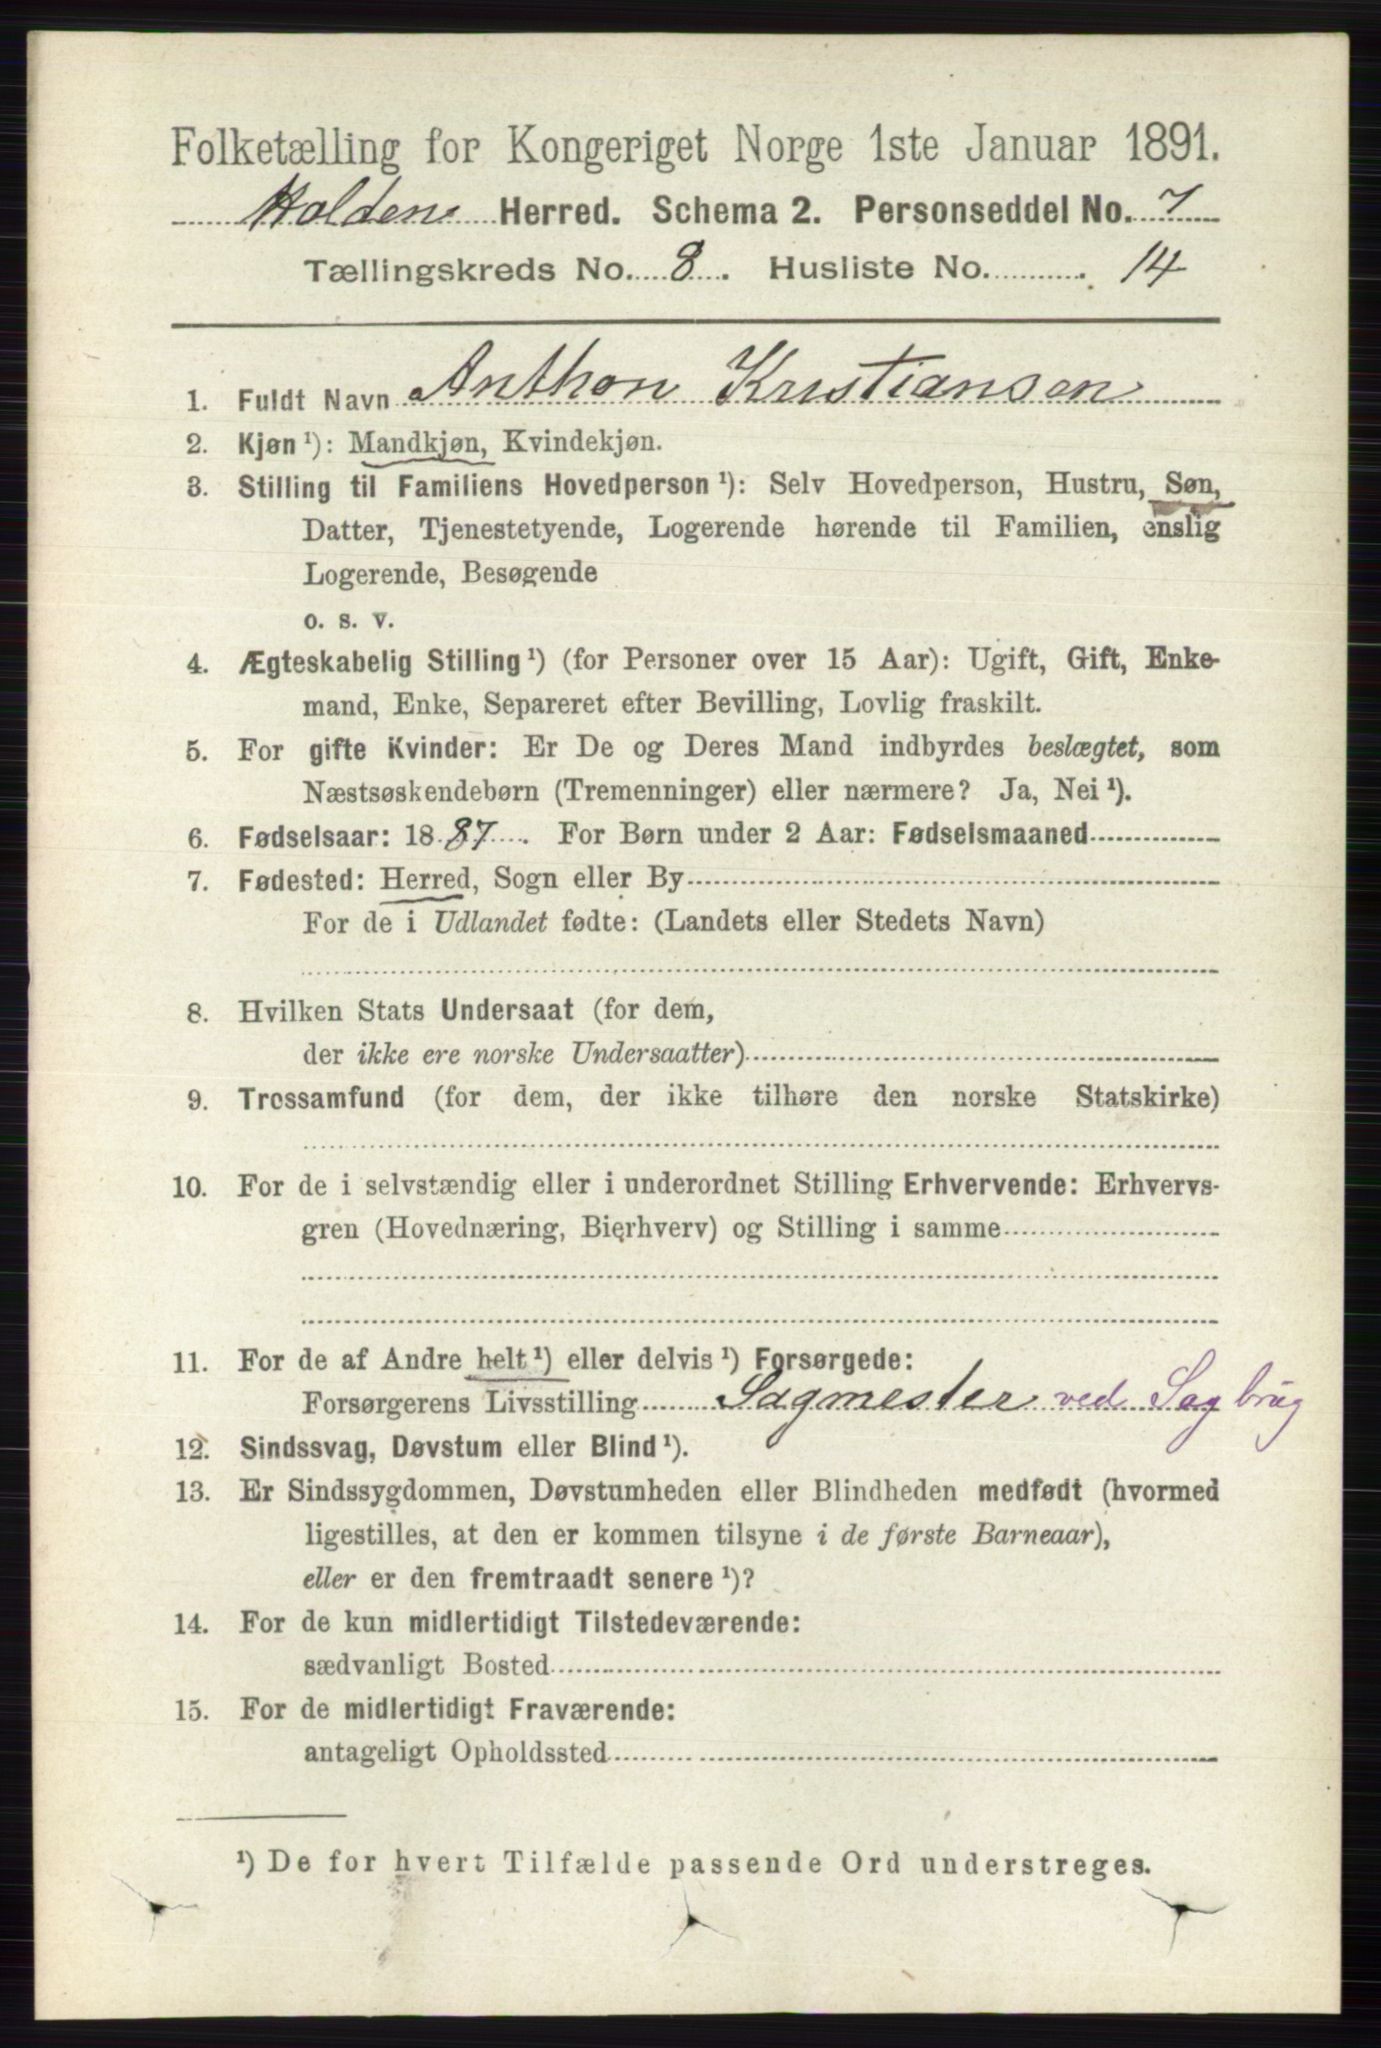 Folketælling for Kongeriget Norge 1ste Januar 1891.
Holden Herred. Schema 2. Personseddel No. 7
Tællingskreds No. 8. Husliste No. 14
1. Fuldt Navn Anthon Kristiansen
2. Kjøn ¹): Mandkjøn, Kvindekjøn.
3. Stilling til Familiens Hovedperson ¹): Selv Hovedperson, Hustru, Søn,
Datter, Tjenestetyende, Logerende hørende til Familien, enslig
Logerende, Besøgende
o. s. v.
4. Ægteskabelig Stilling ¹) (for Personer over 15 Aar): Ugift, Gift, Enke-
mand, Enke, Separeret efter Bevilling, Lovlig fraskilt.
5. For gifte Kvinder: Er De og Deres Mand indbyrdes beslægtet, som
Næstsøskendebørn (Tremenninger) eller nærmere? Ja, Nei ¹).
6. Fødselsaar: 1887. For Børn under 2 Aar: Fødselsmaaned
7. Fødested: Herred, Sogn eller By
For de i Udlandet fødte: (Landets eller Stedets Navn)
8. Hvilken Stats Undersaat (for dem,
der ikke ere norske Undersaatter)
9. Trossamfund (for dem, der ikke tilhøre den norske Statskirke)
10. For de i selvstændig eller i underordnet Stilling Erhvervende: Erhvervs-
gren (Hovednæring, Bierhverv) og Stilling i samme
11. For de af Andre helt ¹) eller delvis ¹) Forsørgede:
Forsørgerens Livsstilling Sagmester ved Sagbrug
12. Sindssvag, Døvstum eller Blind ¹).
13. Er Sindssygdommen, Døvstumheden eller Blindheden medfødt (hvormed
ligestilles, at den er kommen tilsyne i de første Barneaar),
eller er den fremtraadt senere ¹)?
14. For de kun midlertidigt Tilstedeværende:
sædvanligt Bosted
15. For de midlertidigt Fraværende:
antageligt Opholdssted
¹) De for hvert Tilfælde passende Ord understreges.